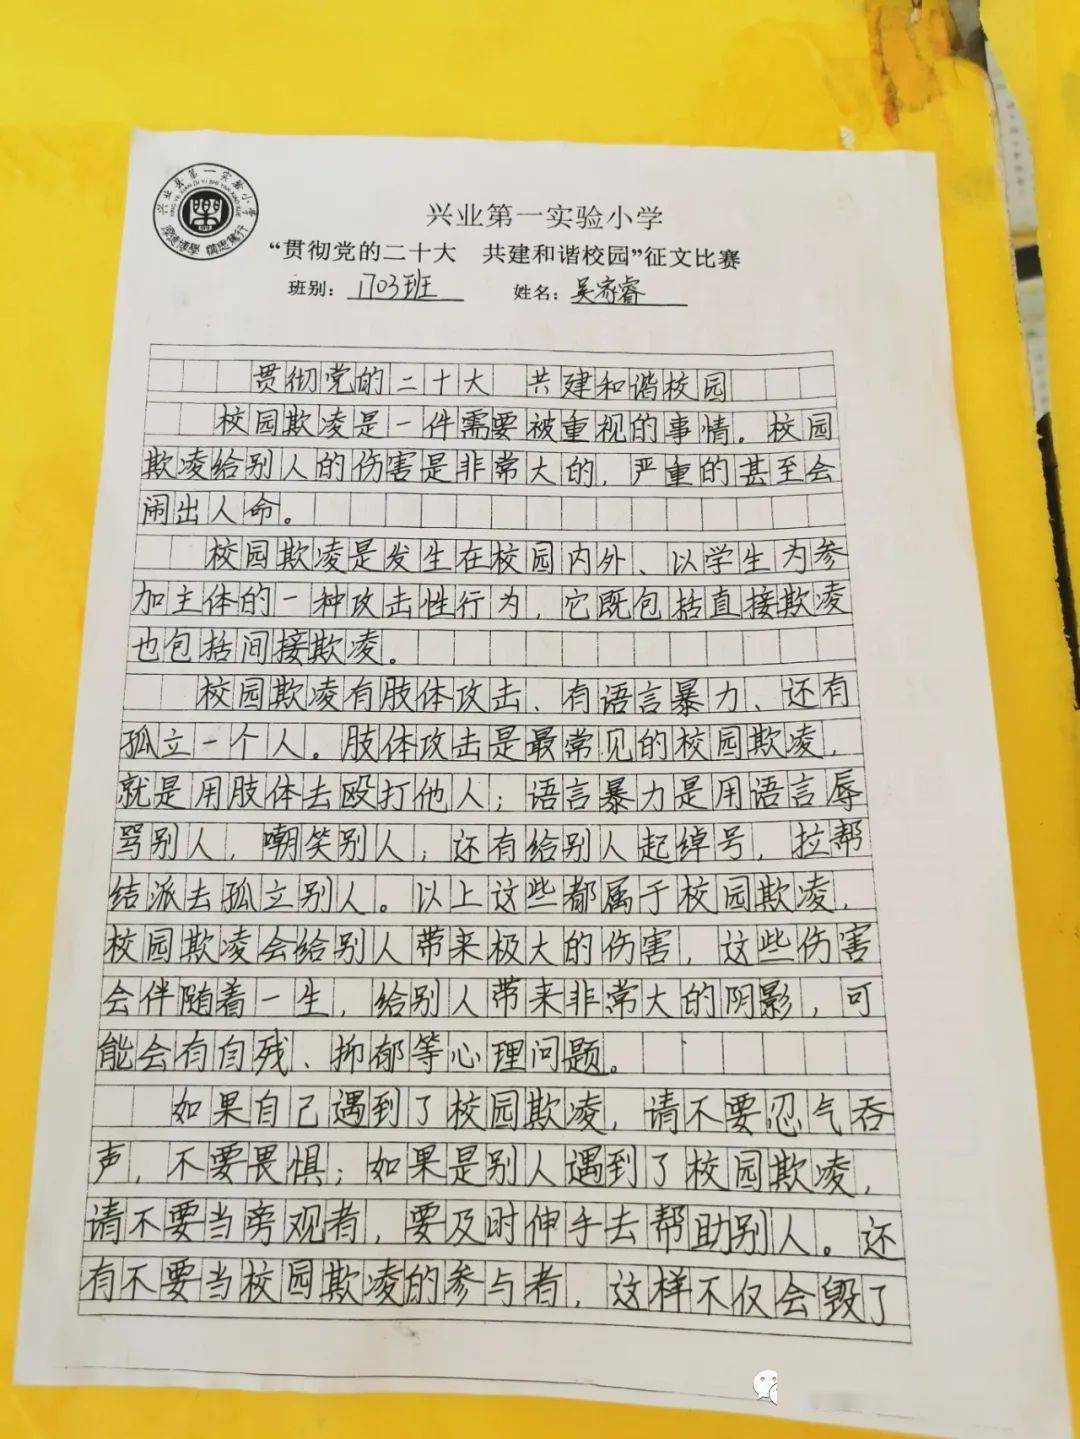 兴业县第一实验小学
XING YE XIAN DI YI SHI YAN XIAO XUE
厚德博學 慎思篤行
兴业第一实验小学
“贯彻党的二十大 共建和谐校园”征文比赛
班别: 1703班 姓名: 吴睿
贯彻党的二十大 共建和谐校园
校园欺凌是一件需要被重视的事情。校园
欺凌给别人的伤害是非常大的，严重的甚至会
闹出人命。
校园欺凌是发生在校园内外、以学生为参
加主体的一种攻击性行为，它既包括直接欺凌
也包括间接欺凌。
校园欺凌有肢体攻击、有语言暴力、还有
孤立一个人。肢体攻击是最常见的校园欺凌，
就是用肢体去殴打他人；语言暴力是用语言辱
骂别人，嘲笑别人；还有给别人起绰号，拉帮
结派去孤立别人。以上这些都属于校园欺凌，
校园欺凌会给别人带来极大的伤害，这些伤害
会伴随着一生，给别人带来非常大的阴影，可
能会有自残、抑郁等心理问题。
如果自己遇到了校园欺凌，请不要忍气吞
声，不要畏惧；如果是别人遇到了校园欺凌，
请不要当旁观者，要及时伸手去帮助别人。还
有不要当校园欺凌的参与者，这样不仅会毁了